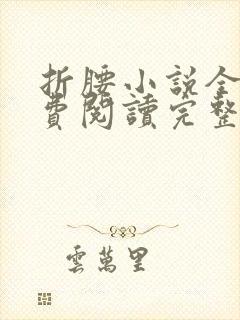 折腰小説全
費閱讀完整
雲萬里